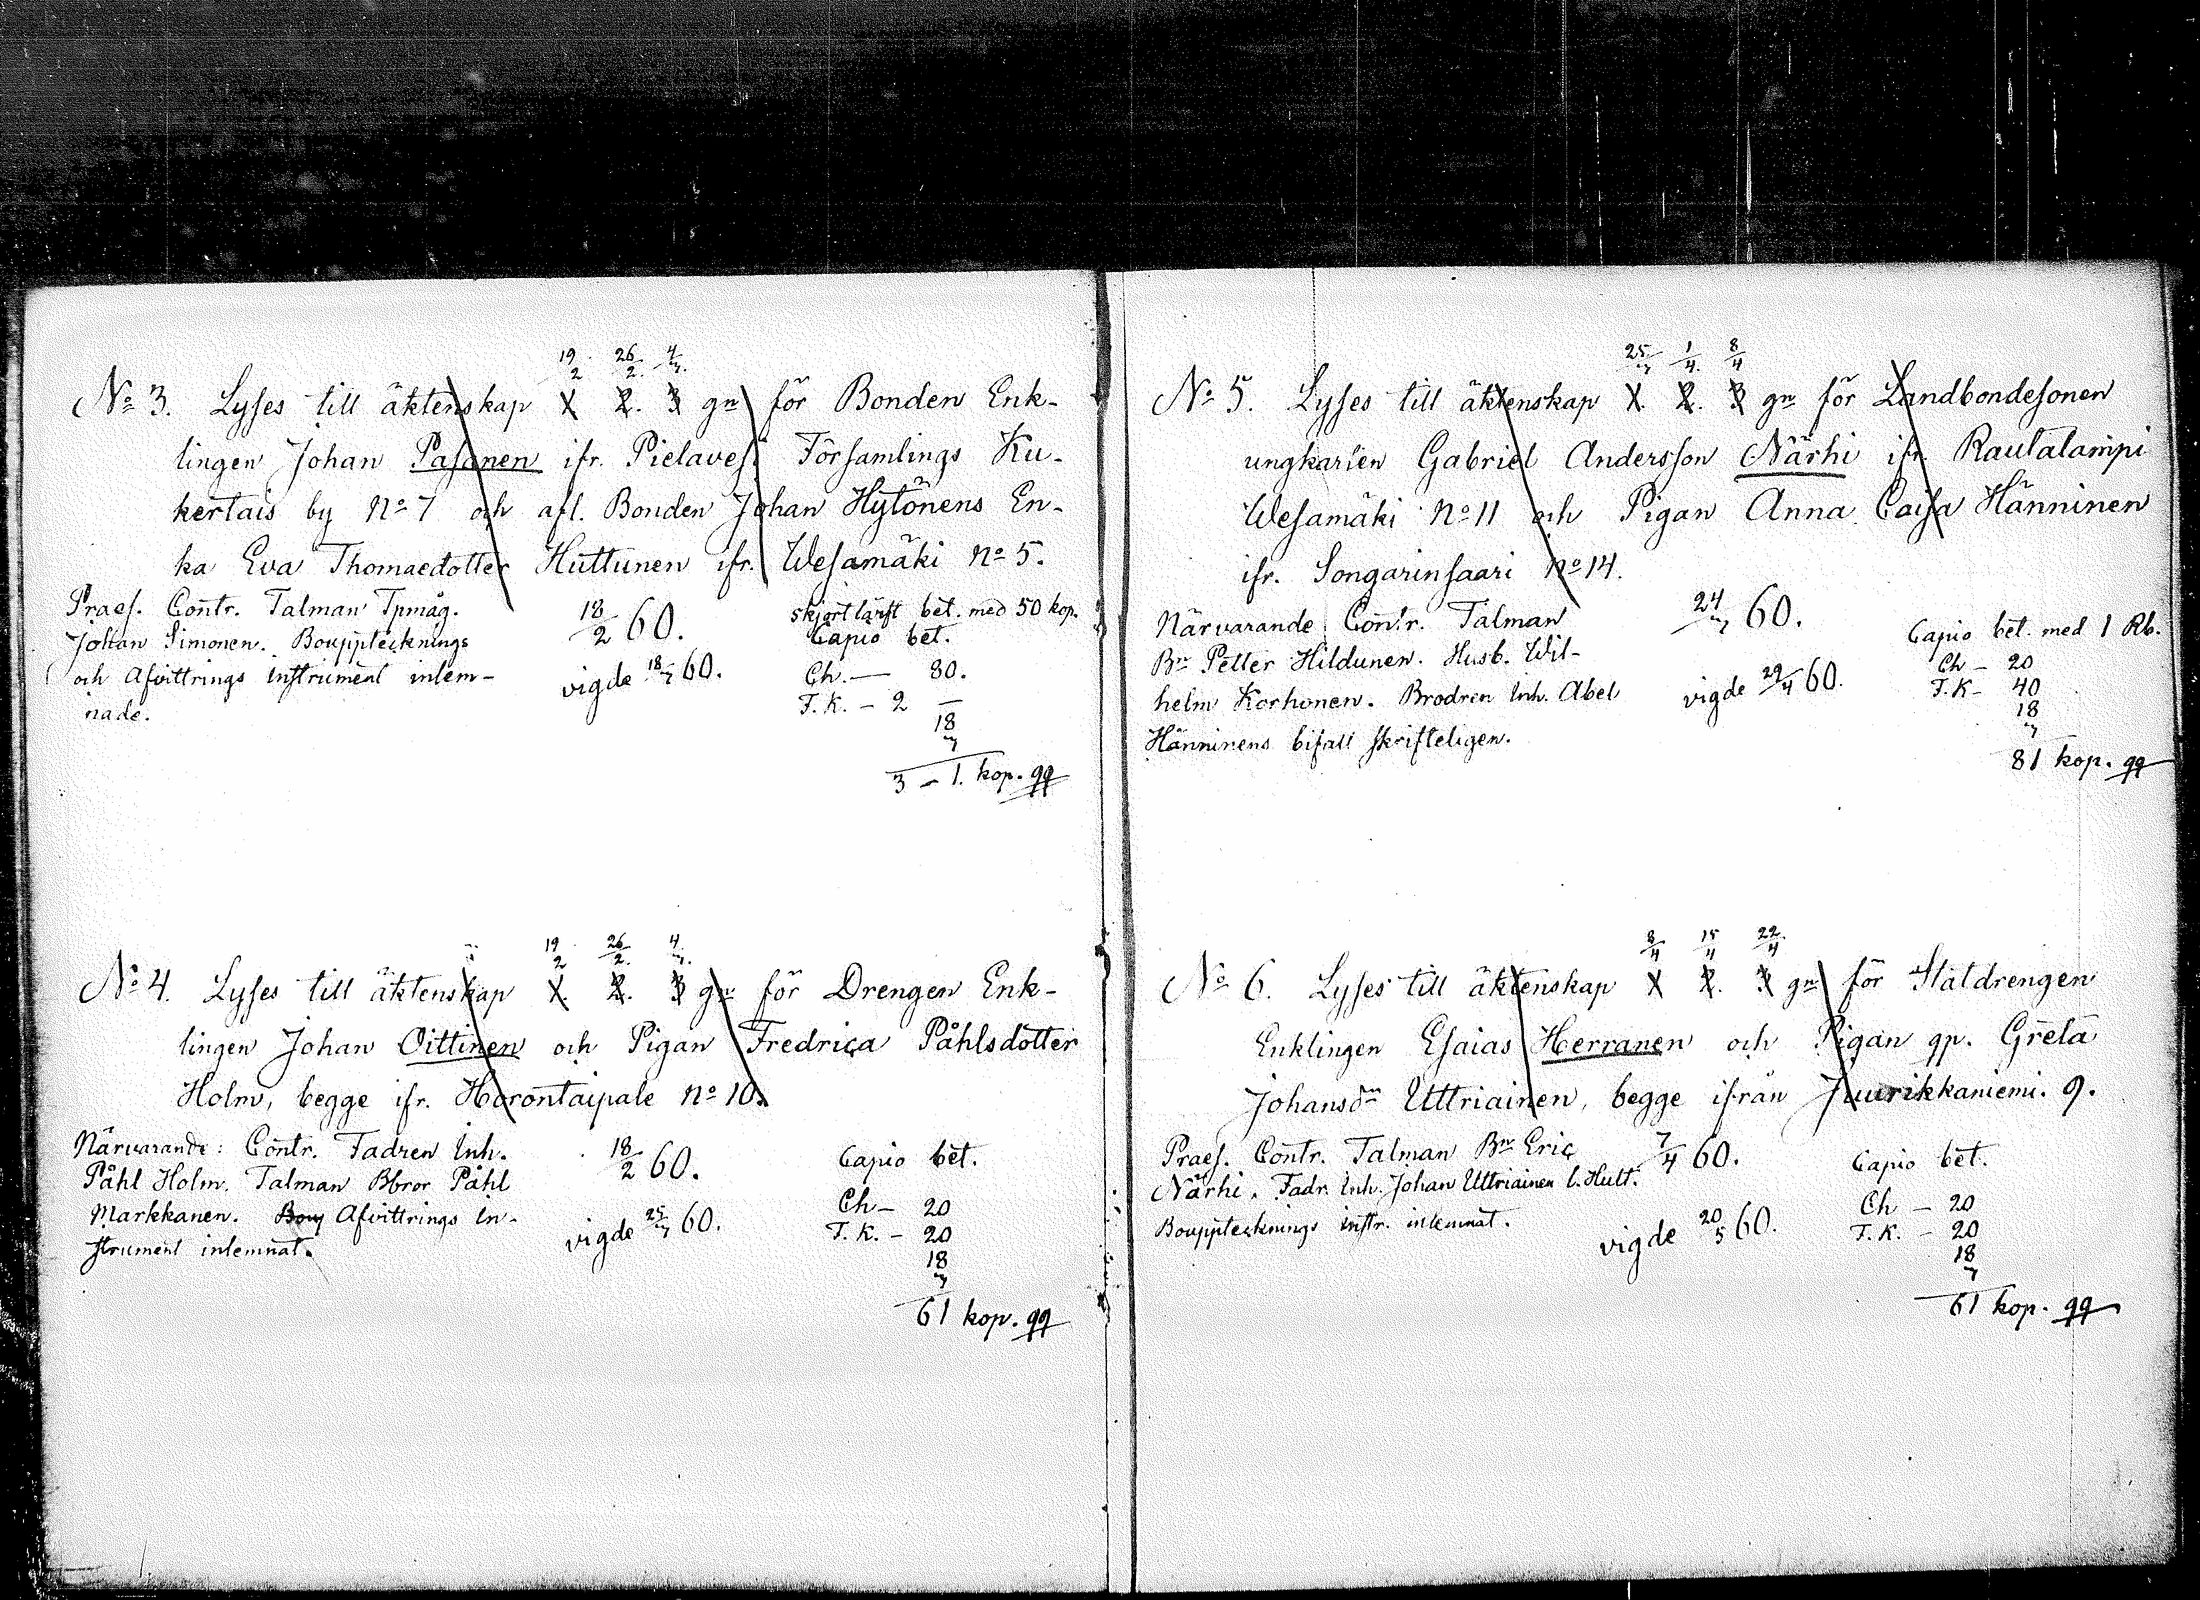 19/2 26/2 4/3
No 3. Lyses till äktenskap 1. 2. 3 gn för Bonden Enk-
lingen Johan Pasanen ifr. Pielavesi Församlings Ku-
kertais by No 7 och afl. Bonden Johan Hytönens En-
ka Eva Thomaedotter Huttunen ifr. Wesamäki No 5.
Praes. Contr. Talman Tpmåg.
Johan Simonen. Bouppteknings
och Afvittrings instrument inlem-
nade.
18/2 60.
vigde 18/3 60.
skjortlärft bet. med 50 kop.
Capio bet.
Ch. — 80.
F. K. – 2 –
18
3
3 – 1. kop. qq
19/2 26/2 4/3
No 4. Lyses till äktenskap 1. 2. 3 gn för Drengen Enk-
lingen Johan Oittinen och Pigan Fredrica Påhlsdotter
Holm, begge ifr. Horontaipale No 10.
Närvarande: Contr. Fadren Inh.
Påhl Holm. Talman Bbror Påhl
Markkanen. Afvittrings in-
strument inlemnat.
18/2 60.
vigde 25/3 60.
Capio bet.
Ch – 20
F. K. – 20
18
3
61 kop. qq
25/3 1/4 8/4
No 5. Lyses till äktenskap 1. 2. 3 gn för Landbondesonen
ungkarlen Gabriel Andersson Närhi ifr. Rautalampi
Wesamäki No 11 och Pigan Anna Caisa Hänninen
ifr. Songarinsaari No 14.
Närvarande: Contr. Talman
Bn Petter Hildunen. Husb. Wil-
helm Korhonen. Brodren Inh. Abel
Hänninens bifall skrifteligen.
24/3 60.
vigde 29/4 60.
Capio bet. med 1 Rb.
Ch – 20
F. K – 40
18
3
81 kop. qq
8/4 15/4 22/4
No 6. Lyses till äktenskap 1 2. 3 gn för Statdrengen
Enklingen Esaias Herranen och Pigan gp. Greta
Johansdr Uttriainen, begge ifrån Juurikkaniemi. 9.
Praes. Contr. Talman Bn Eric
Närhi. Fadr. Inh. Johan Uttriainen l. Hutt.
Bouppteknings instr. inlemnat.
7/4 60.
vigde 20/5 60.
Capio bet.
Ch – 20
F. K. – 20
18
3
61 kop. qq